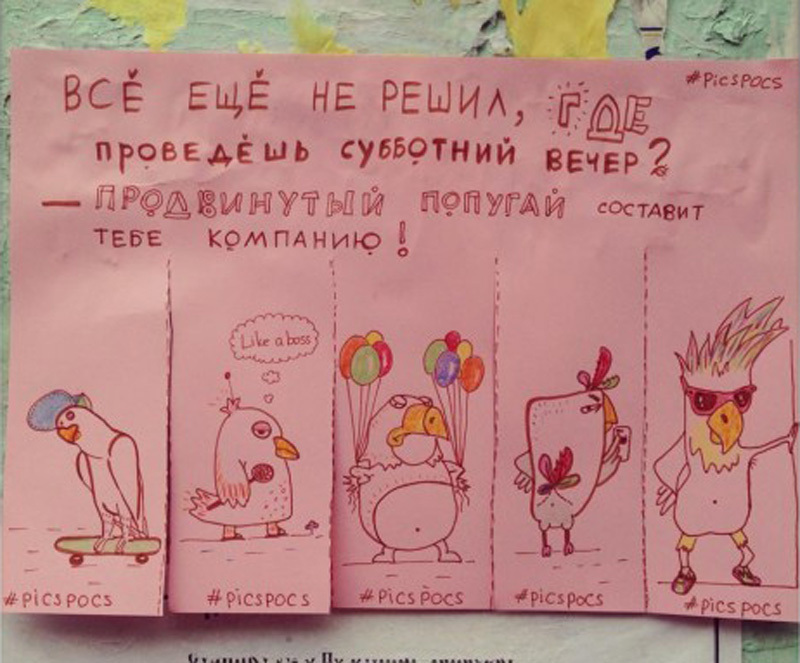 #PicsPOCS
ВСЁ ЕЩЁ НЕ РЕШИЛ, ГДЕ
ПРОВЕДЁШЬ СУББОТНИЙ ВЕЧЕР?
— ПРОДВИНУТЫЙ ПОПУГАЙ СОСТАВИТ
ТЕБЕ КОМПАНИЮ!
Like a boss
#PicsPOCS
#PicsPOCS
#PicsPOCS
#PicsPOCS
#PicsPOCS